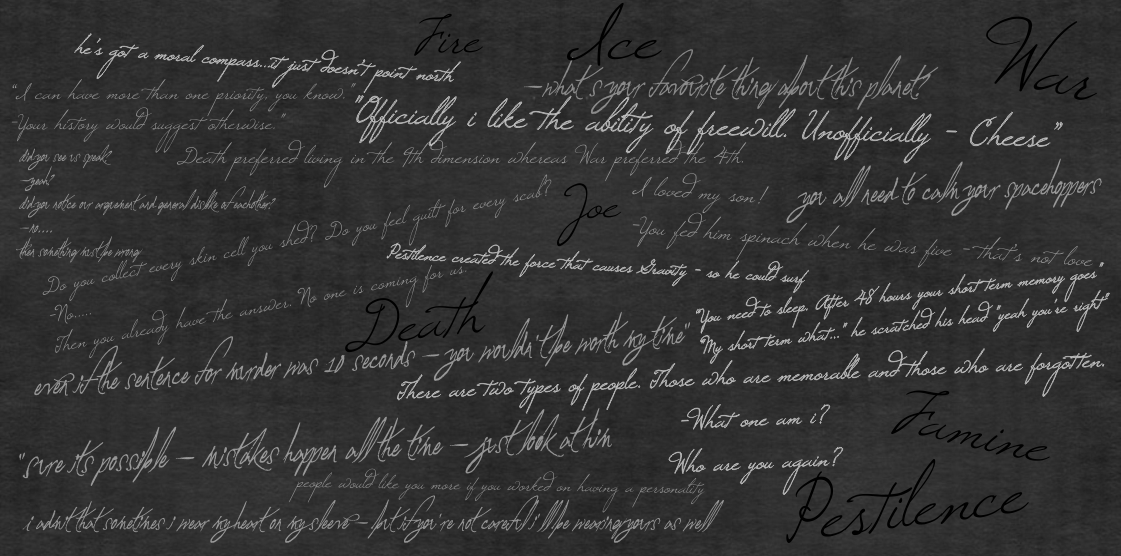 Fire
Ice
War
he's got a moral compass...it just doesn't point north
—what's your favorite thing about this planet?
"I can have more than one priority, you know."
-Your history would suggest otherwise."
"Officially i like the ability of freewill. Unofficially - Cheese"
Did you see us speak?
-yeah?
Did you notice our arguement and general dislike of eachother?
-no....
-then something must be wrong
Death preferred living in the 9th dimension whereas War preferred the 4th.
Joe
I loved my son!
-You fed him spinach when he was five -that's not love
you all need to calm your spacehoppers
Do you collect every skin cell you shed? Do you feel guilt for every scab?
-No.....
Then you already have the answer. No one is coming for us.
Pestilence created the force that causes Gravity - so he could surf
Death
"You need to sleep. After 48 hours your short term memory goes"
"My short term what..." he scratched his head "yeah you're right"
even if the sentence for murder was 10 seconds — you wouldn't be worth my time"
There are two types of people. Those who are memorable and those who are forgotten.
-What one am i?
Who are you again?
Famine
Pestilence
"sure its possible — mistakes happen all the time — just look at him
people would like you more if you worked on having a personality
i admit that sometimes i wear my heart on my sleeve — but if you're not careful i'll be wearing yours as well